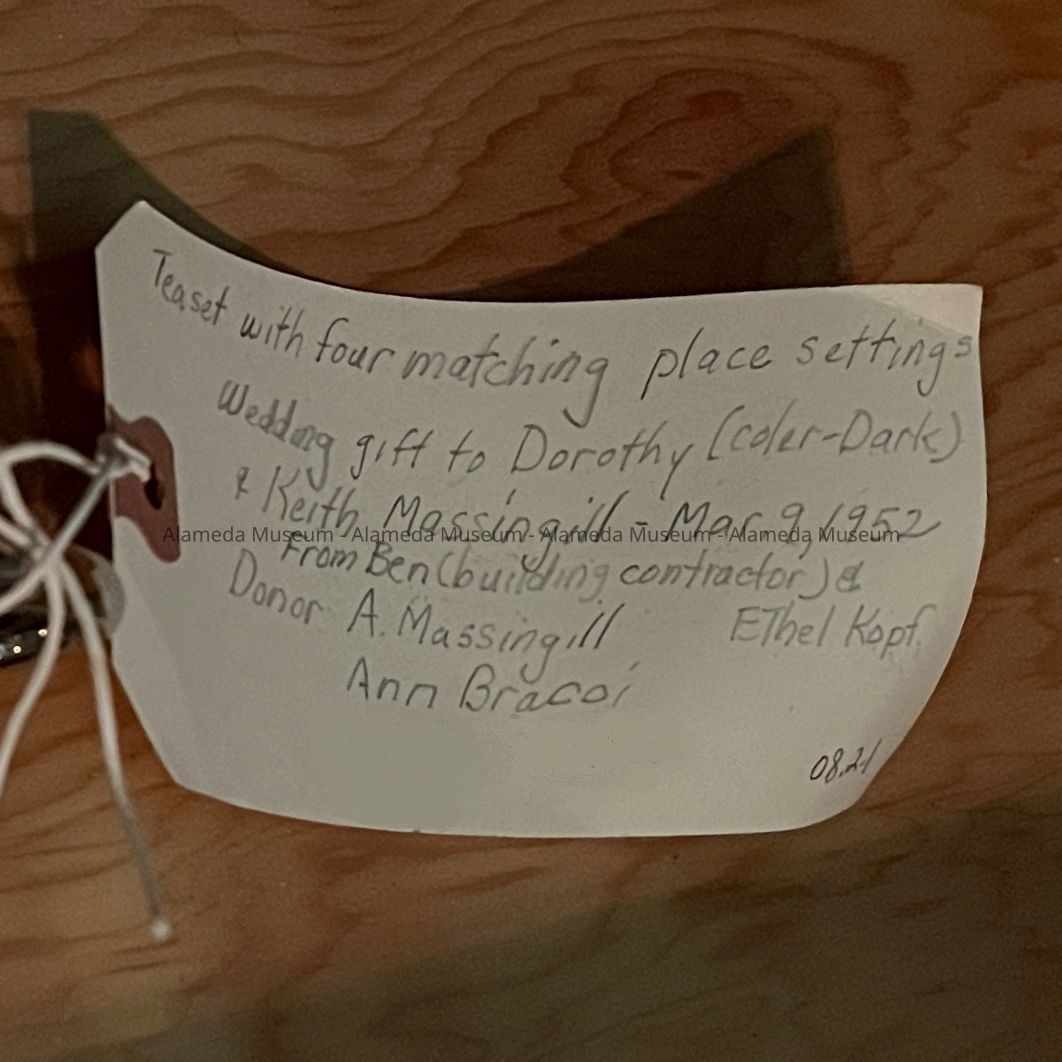 Teaset with four matching place settings
Wedding gift to Dorothy (coler-Dark)
& Keith Massingill - Mar 9, 1952
From Ben (building contractor) &
Ethel Kopf.
Donor A. Massingill
Ann Bracoi
08.21
Alameda Museum - Alameda Museum - Alameda Museum - Alameda Museum